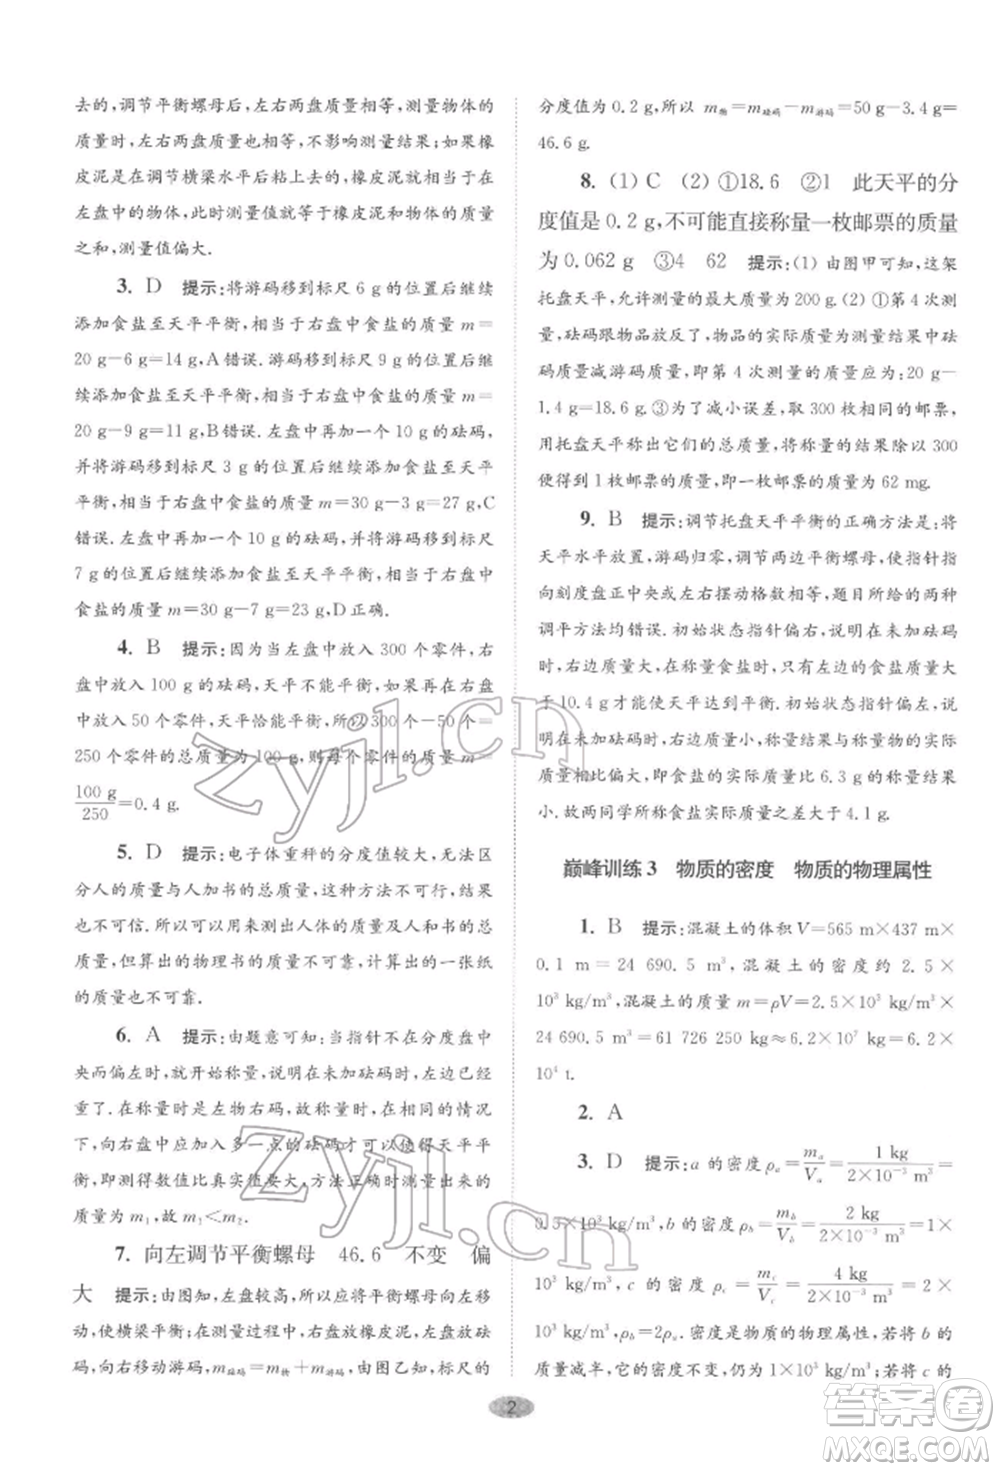 去的,调节平衡螺母后,左右两盘质量相等,测量物体的
质量时,右盘的质量也相等,不影响测量结果.如果是橡
皮泥在调节横梁水平后粘上去的,橡皮泥就相当于放在
左盘中的物体,此时测量值等于橡皮泥和物体的质量
之和,测量值偏大.
3. D 提示:将游码移到标尺 6 g 的位置后继续
添加食盐至天平平衡,相当于右盘中食盐的质量 m=
20 g-6 g=14 g,A错误.游码移到标尺 9 g 的位置后继
续添加食盐至天平平衡,相当于右盘中食盐的质量 m=
20 g-9 g=11 g,B错误.左盘中再加一个 10 g 的砝码,
并将游码移到标尺 3 g 的位置后继续添加食盐至天平
平衡,相当于右盘中食盐的质量 m=30 g-3 g=27 g,C
错误.左盘中再加一个 10 g 的砝码,并将游码移到标尺
7 g 的位置后继续添加食盐至天平平衡,相当于右盘中
食盐的质量 m=30 g-7 g=23 g,D正确.
4. B 提示:因为当左盘中放入 300 个零件,右
盘中放入 100 g 的砝码,天平不能平衡,如果再在右盘
中放入 50 个零件,天平恰能平衡,所以 300 个-50 个=
250 个零件的总质量为 100 g,则每个零件的质量 m=
100 g/250=0.4 g.
5. D 提示:电子体重秤的分度值较大,无法区
分人的质量与人加书的总质量,这种方法不可行,结果
也不可信.所以可以用来测出人体的质量且结果可信,
但算出的物理书的质量不可靠,进而算出的一张纸
的质量也不可靠.
6. A 提示:由题意可知,当指针不在分度盘中
央而偏左时,就开始称量,说明在未加砝码时,左边已经
重了.在称量时是左物右码,故称量时,在相同的情况
下,向右盘中应加入多一点的砝码才可以使得天平平
衡,即测出的质量值偏大,方法正确时测得的值为实际
质量为 m₁,故 m₁<m₂.
7. 向左调节平衡螺母 46.6 不变 偏
大 提示:由图知,左盘较高,所以应将平衡螺母向左移
动,使横梁平衡;在测量过程中,右盘放橡皮泥,左盘放砝
码,向右移动游码,m砝码=m物+m游码,由图乙知,标尺的
分度值为 0.2 g,所以 m物=m砝码-m游码=50 g-3.4 g=
46.6 g.
8. (1) C (2) ①18.6 ②1 此天平的分
度值是 0.2 g,不可能直接称量一枚邮票的质量
为 0.062 g ③4 62 提示:(1) 由图甲可知,这架
托盘天平,允许测量的最大质量为 200 g.(2) ①第 4 次测
量,砝码跟物品放反了,物品的实际质量为测量结果中砝
码质量减游码质量,即第 4 次测量的质量应为 20 g-
1.4 g=18.6 g.③为了减小误差,取 300 枚相同的邮票,
用托盘天平称出它们的总质量,将称量的结果除以 300
便得到 1 枚邮票的质量,即一枚邮票的质量为 62 mg.
9. B 提示:调节托盘天平平衡的正确方法是:将
天平水平放置,游码归零,调节两边平衡螺母,使指针指
向刻度盘正中央或左右摆动格数相等,题目所述的两种
调平方法均错误.初始状态指针偏右,说明在未加砝码
时,右边质量大,在称量食盐时,只有左边的食盐质量大
于 10.4 g才能使天平达到平衡.初始状态指针偏左,说明
在未加砝码时,左边质量大,称量结果与称量物的实际
质量相比偏大,即食盐的实际质量比 6.3 g 称量结果偏
小.故两同学所称食盐实际质量之差大于 4.1 g.
巅峰训练 3 物质的密度 物质的物理属性
1. B 提示:混凝土的体积 V=565 m×437 m×
0.1 m=24 690.5 m³,混凝土的密度约 2.5×
10³ kg/m³,混凝土的质量 m=ρV=2.5×10³ kg/m³×
24 690.5 m³=61 726 250 kg≈6.2×10⁷ kg=6.2×
10⁴ t.
2. A
3. D 提示:a 的密度 ρₐ=mₐ/Vₐ=1 kg/(2×10⁻³ m³)=
0.5×10³ kg/m³,b 的密度 ρ_b=m_b/V_b=2 kg/(2×10⁻³ m³)=1×
10³ kg/m³,c 的密度 ρ_c=m_c/V_c=4 kg/(2×10⁻³ m³)=2×
10³ kg/m³,ρ_b=2ρₐ.密度是物质的物理属性,若将 b 的
质量减半,它的密度不变,仍为 1×10³ kg/m³;若将 c 的
2
zyjl.cn
zyjl.cn
答案圈
MXQE.COM